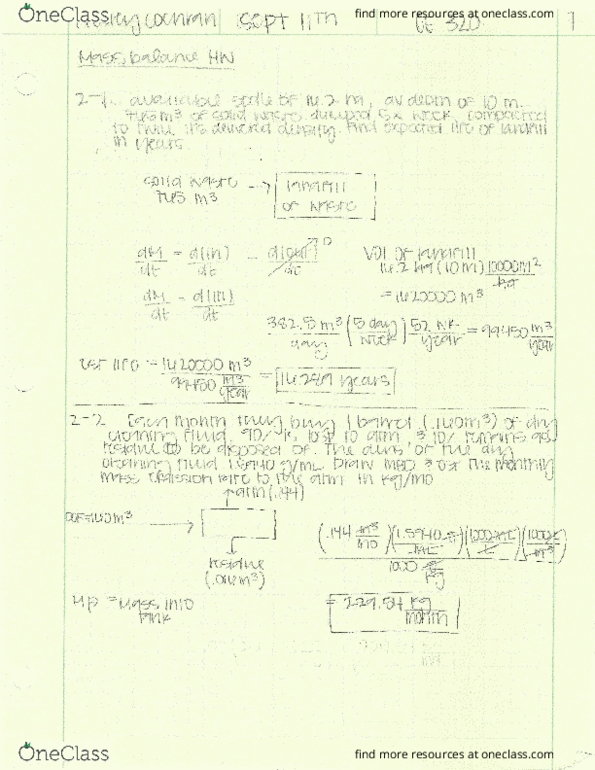 OneClass
find more resources at oneclass.com
Cochran Sept 11th CE 320 1
Mass balance HW
2-1. available space of 14.2 ha, av depth of 10 m.
765 m³ of solid waste dumped 5x week, compacted
to twice its delivered density. Find expected life of landfill
in years
solid waste → landfill
765 m³ of waste
dM/dt = d(in)/dt - d(out)/dt 0
Vol of landfill
14.2 ha (10 m) 10000 m²/ha
= 1420000 m³
dM/dt = d(in)/dt
382.5 m³/day (5 day/week) 52 wk/year = 99450 m³/year
est life = 1420000 m³ / 99450 m³/year = 14.28 years
2-2 Each month they buy 1 barrel (.160 m³) of dry
cleaning fluid. 90% is lost to atm, 10% remains as
residue to be disposed of. The dens of the dry
cleaning fluid 1.5940 g/mL. Draw MBD est the monthly
mass emission rate to the atm in kg/mo
atm (.144)
m³
residue
(.016 m³)
(.144 m³/mo)(1.5940 g/mL)(1000 mL/L)(1000 L/m³)
1000 g/kg
= 229.54 kg/month
= Mass into
tank
OneClass
find more resources at oneclass.com